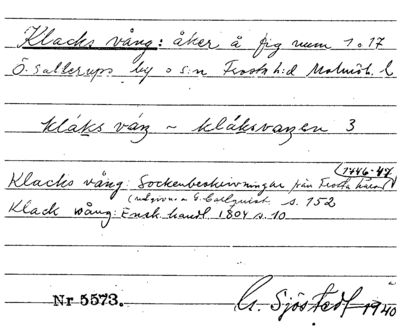 Klacks vång: åker å fig num 1017
Ö. Sallerups by o s:n Frosta h:d Malmöh. l
klåks våŋ ~ klåksvaŋen 3
1746-47
Klacks vång: Sockenbeskrivningar från Frosta härad
(utgivna G. Carlquist s. 152
Klack wång: Ensk. handl. 1804 s. 10
Nr 5573. G. Sjöstedt 1940